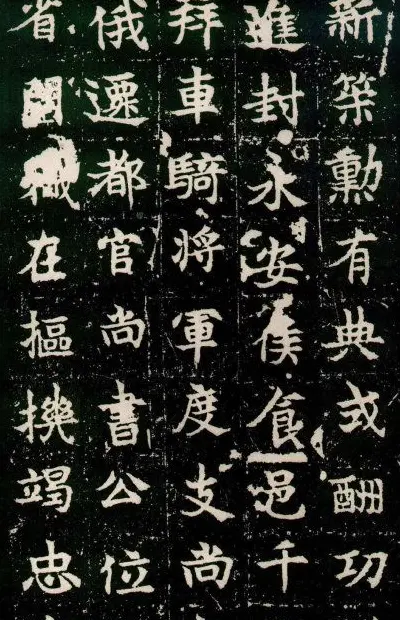 新築勳有典或酬功
進封永安侯食邑千
拜車騎將軍度支尚
俄遷都官尚書公位
省閤職在樞機竭忠